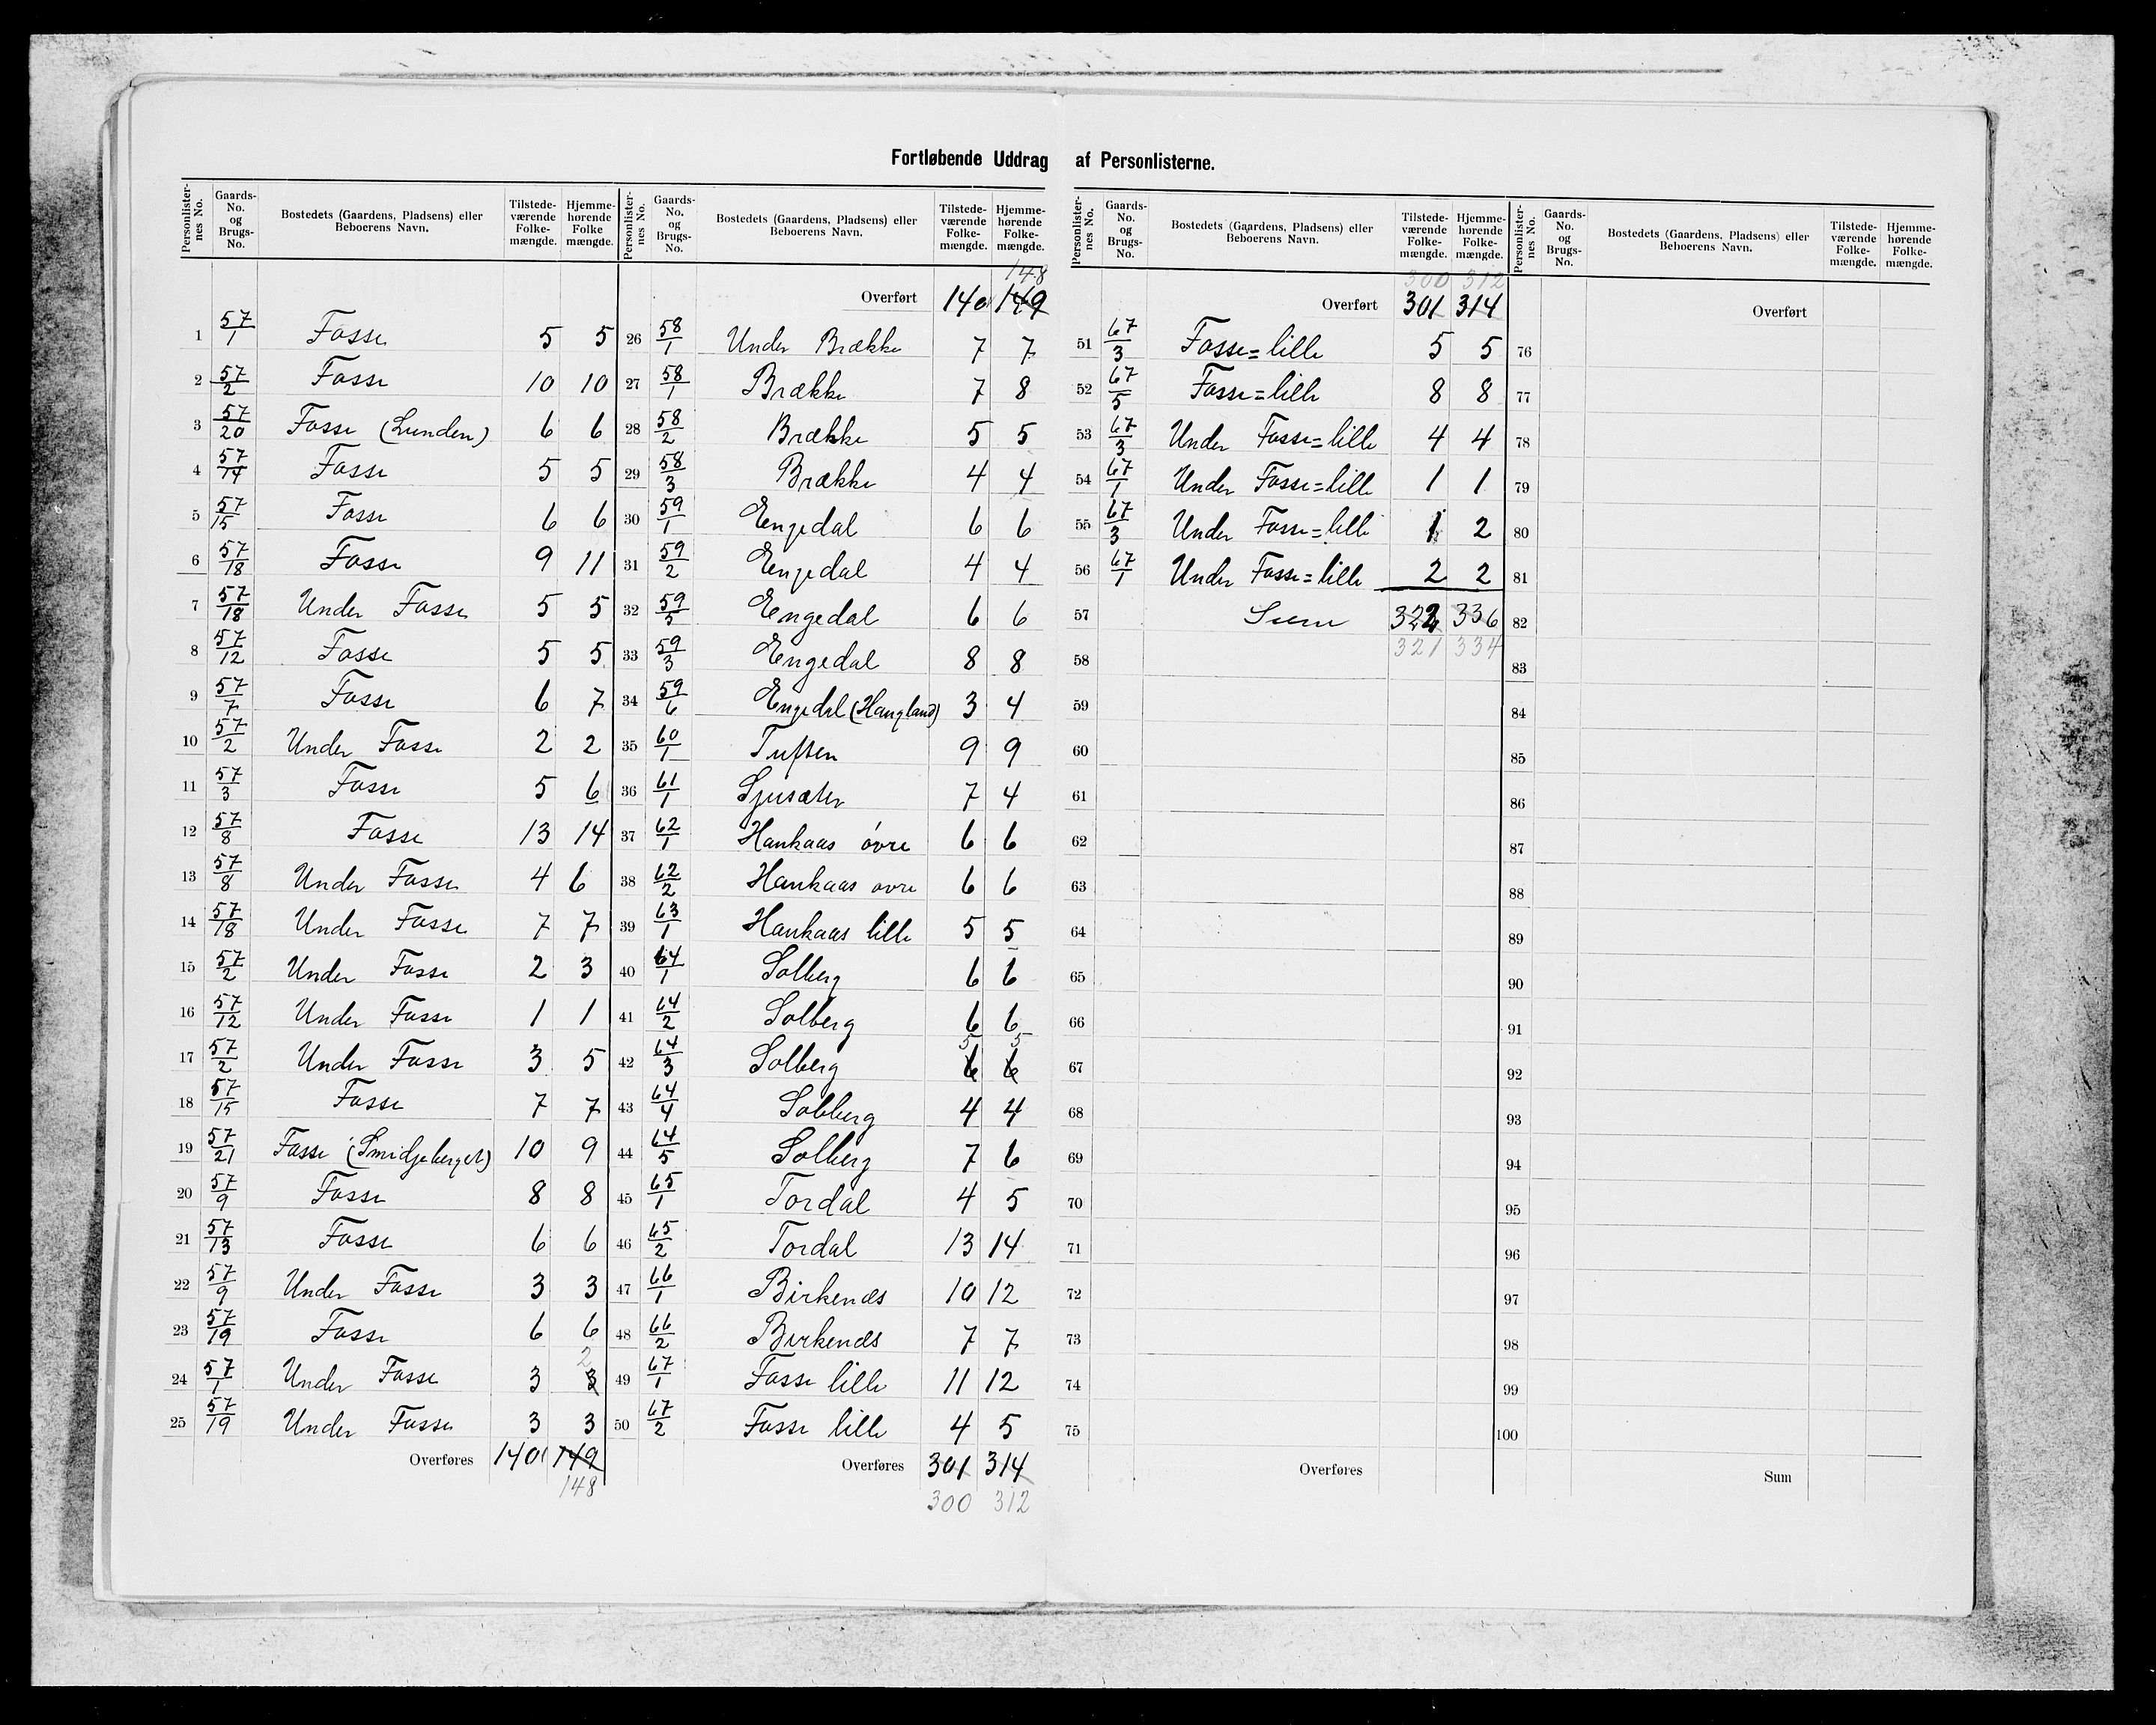 Fortløbende Uddrag af Personlisterne.
Personlister-nes No. Gaards-No. og Brugs-No. Bostedets (Gaardens, Pladsens) eller Beboerens Navn. Tilstede-værende Folke-mængde. Hjemme-hørende Folke mængde.
1 57/1 Fosse 5 5
2 57/2 Fosse 10 10
3 57/20 Fosse (Lunden) 6 6
4 57/14 Fosse 5 5
5 57/15 Fosse 6 6
6 57/18 Fosse 9 11
7 57/18 Under Fosse 5 5
8 57/12 Fosse 5 5
9 57/7 Fosse 6 7
10 57/2 Under Fosse 2 2
11 57/3 Fosse 5 6
12 57/8 Fosse 13 14
13 57/8 Under Fosse 4 6
14 57/18 Under Fosse 7 7
15 57/2 Under Fosse 2 3
16 57/12 Under Fosse 1 1
17 57/2 Under Fosse 3 5
18 57/15 Fosse 7 7
19 57/21 Fosse (Smidjeberget) 10 9
20 57/9 Fosse 8 8
21 57/13 Fosse 6 6
22 57/9 Under Fosse 3 3
23 57/19 Fosse 6 6
24 57/1 Under Fosse 3 3 2
25 57/19 Under Fosse 3 3
Overføres 140 149
148
Personlister-nes No. Gaards-No. og Brugs-No. Bostedets (Gaardens, Pladsens) eller Beboerens Navn. Tilstede-værende Folke-mængde. Hjemme-hørende Folke-mængde.
148
Overført 140 149
26 58/1 Under Brække 7 7
27 58/1 Brække 7 8
28 58/2 Brække 5 5
29 58/3 Brække 4 4
30 59/1 Engedal 6 6
31 59/2 Engedal 4 4
32 59/5 Engedal 6 6
33 59/3 Engedal 8 8
34 59/6 Engedal (Haugland) 3 4
35 60/1 Tuften 9 9
36 61/1 Sjusæter 7 4
37 62/1 Haukaas övre 6 6
38 62/2 Haukaas ovre 6 6
39 63/1 Haukaas lille 5 5
40 64/1 Solberg 6 6
41 64/2 Solberg 6 6
42 64/3 Solberg 6 5 6 5
43 64/4 Solberg 4 4
44 64/5 Solberg 7 6
45 65/1 Tordal 4 5
46 65/2 Tordal 13 14
47 66/1 Birkenæs 10 12
48 66/2 Birkenæs 7 7
49 67/1 Fosse lille 11 12
50 67/2 Fosse lille 4 5
Overføres 301 314
300 312
Personlister-nes No. Gaards-No. og Brugs-No. Bostedets (Gaardens, Pladsens) eller Beboerens Navn. Tilstede-værende Folke-mængde. Hjemme-hørende Folke-mængde.
300 312
Overført 301 314
51 67/3 Fosse=lille 5 5
52 67/5 Fosse=lille 8 8
53 67/3 Under Fosse=lille 4 4
54 67/1 Under Fosse=lille 1 1
55 67/3 Under Fosse=lille 1 2
56 67/1 Under Fosse=lille 2 2
57 Sum 322 336
321 334
58
59
60
61
62
63
64
65
66
67
68
69
70
71
72
73
74
75
Overføres
Personlister-nes No. Gaards-No. og Brugs-No. Bostedets (Gaardens, Pladsens) eller Beboerens Navn. Tilstede-værende Folke-mængde. Hjemme-hørende Folke-mængde.
Overført
76
77
78
79
80
81
82
83
84
85
86
87
88
89
90
91
92
93
94
95
96
97
98
99
100
Sum